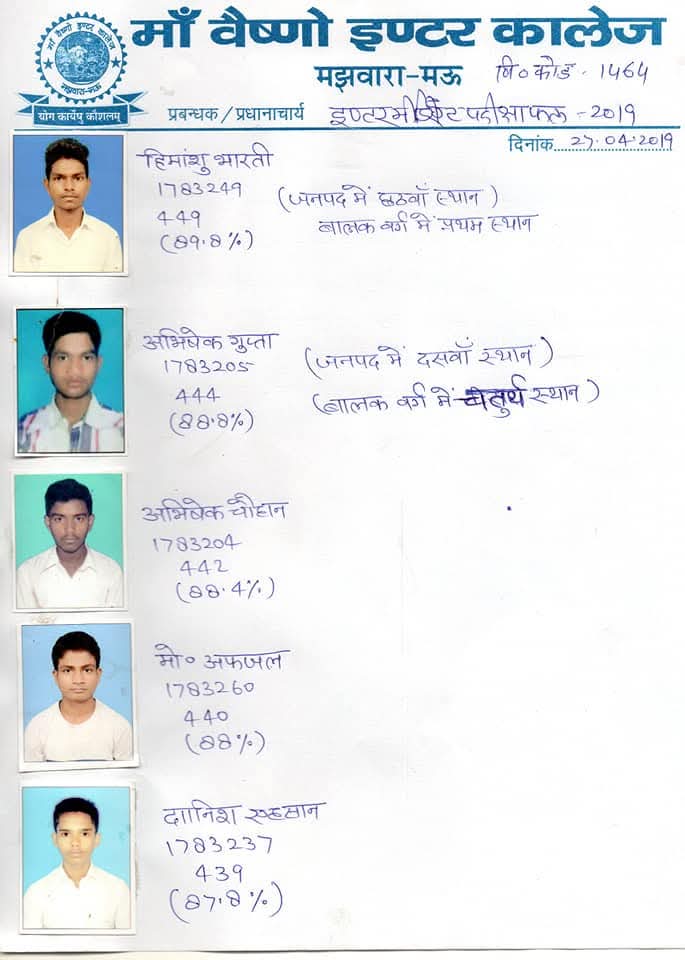 माँ वैष्णो इण्टर कालेज
माँ वैष्णो इण्टर कालेज
मझवारा-मऊ
योग कर्मषु कौशलम्
मझवारा-मऊ वि० कोड - 1464
प्रबन्धक / प्रधानाचार्य इण्टरमीडिएट परीक्षाफल - 2019
दिनांक 27.04.2019
हिमांशु भारती
1783249 (जनपद में छठवाँ स्थान)
449 बालक वर्ग में प्रथम स्थान
(89.8%)
अभिषेक गुप्ता
1783205 (जनपद में दसवाँ स्थान)
444 (बालक वर्ग में चतुर्थ स्थान)
(88.8%)
अभिषेक चौहान
1783204
442
(88.4%)
मो० अफजल
1783260
440
(88%)
दानिश
1783237
439
(87.8%)